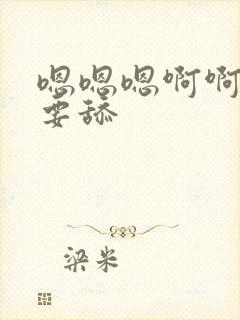 嗯嗯嗯啊啊
要舔
梁米